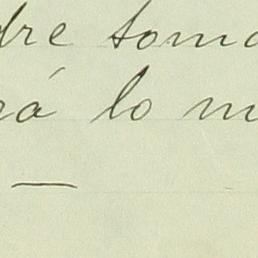 dre toma
rá lo m
—